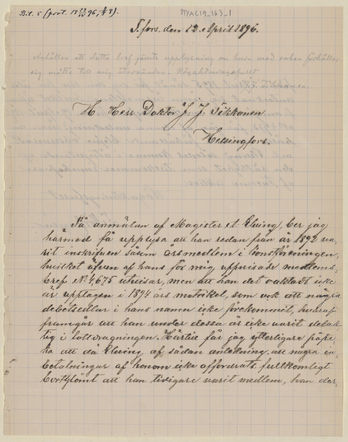 Bil. 5 (prot. 18 96, § 3).
T.fors, den 12 April 1896.
H. Herr Doktor J. J. Tikkanen
Helsingfors.
På anmälan af Magister A. Elving, ber jag
härmed få upplysa att han redan från år 1892 va-
rit inskrifven såsom årsmedlem i konstföreningen,
hvilket äfven af hans för mig uppvisade medlems-
bref № 4,675 utvisar, men att han det oaktadt icke
är upptagen i 1894 års matrikel, som ock att några
debetsedlar i hans namn icke förekommit, hvaraf
framgår att han under dessa år icke varit delak-
tig i lottdragningen. Härtill får jag ytterligare påpe-
ka att då Elving af sådan anledning att några in-
betalningar af honom icke affordrats fullkomligt
bortglömt att han tidigare varit medlem, han der-